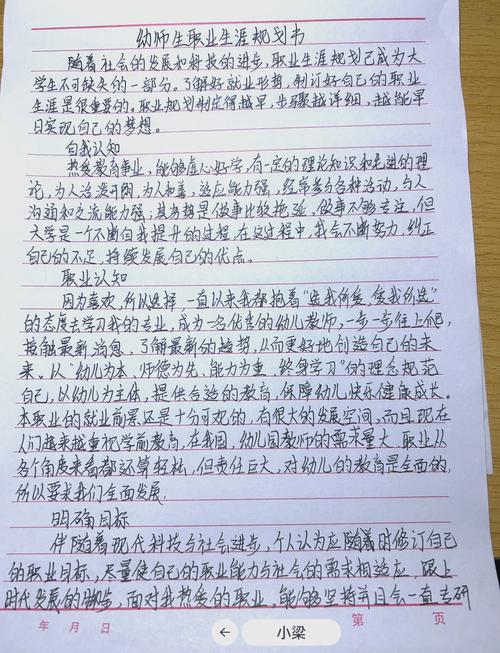 幼师生职业生涯规划书
随着社会的发展和科技的进步,职业生涯规划已成为大
学生不可缺失的一部分。了解好就业形势,制订好自己的职业
生涯是很重要的。职业规划制定得越早,步骤越详细,越能早
日实现自己的梦想。
自我认知
热爱教育事业,能够虚心好学,有一定的理论知识和先进的理
论,为人活泼开朗,为人和善,适应能力强,经常参与各种活动,与人
沟通和交流能力强;其劣势是做事比较拖拉,做事不够专注,但
大学是一个不断自我提升的过程,在这过程中,我会不断努力,纠正
自己的不足,持续发展自己的优点。
职业认知
因为喜欢,所以选择,一直以来我都抱着“选我所爱,爱我所选”
的态度去学习我的专业,成为一名优秀的幼儿教师,一步一步往上爬,
接触最新消息,了解最新的趋势,从而更好地创造自己的未
来。以“幼儿为本、师德为先、能力为重、终身学习”的理念规范
自己,以幼儿为主体,提供合适的教育,保障幼儿快乐健康成长。
本职业的就业前景还是十分可观的,有很大的发展空间,而且现在
人们越来越重视学前教育,在我国,幼儿园教师的需求量大,职业从
各个角度来看都还算轻松,但责任巨大,对幼儿的教育是全面的,
所以要求我们全面发展.
明确目标
伴随着现代科技与社会进步,个人认为应随着时修订自己
的职业目标,尽量使自己的职业能力与社会的需求相适应,跟上
时代发展的脚步,面对我热爱的职业,能够坚持并且会一直专研
年 月 日 第 页
← 小梁